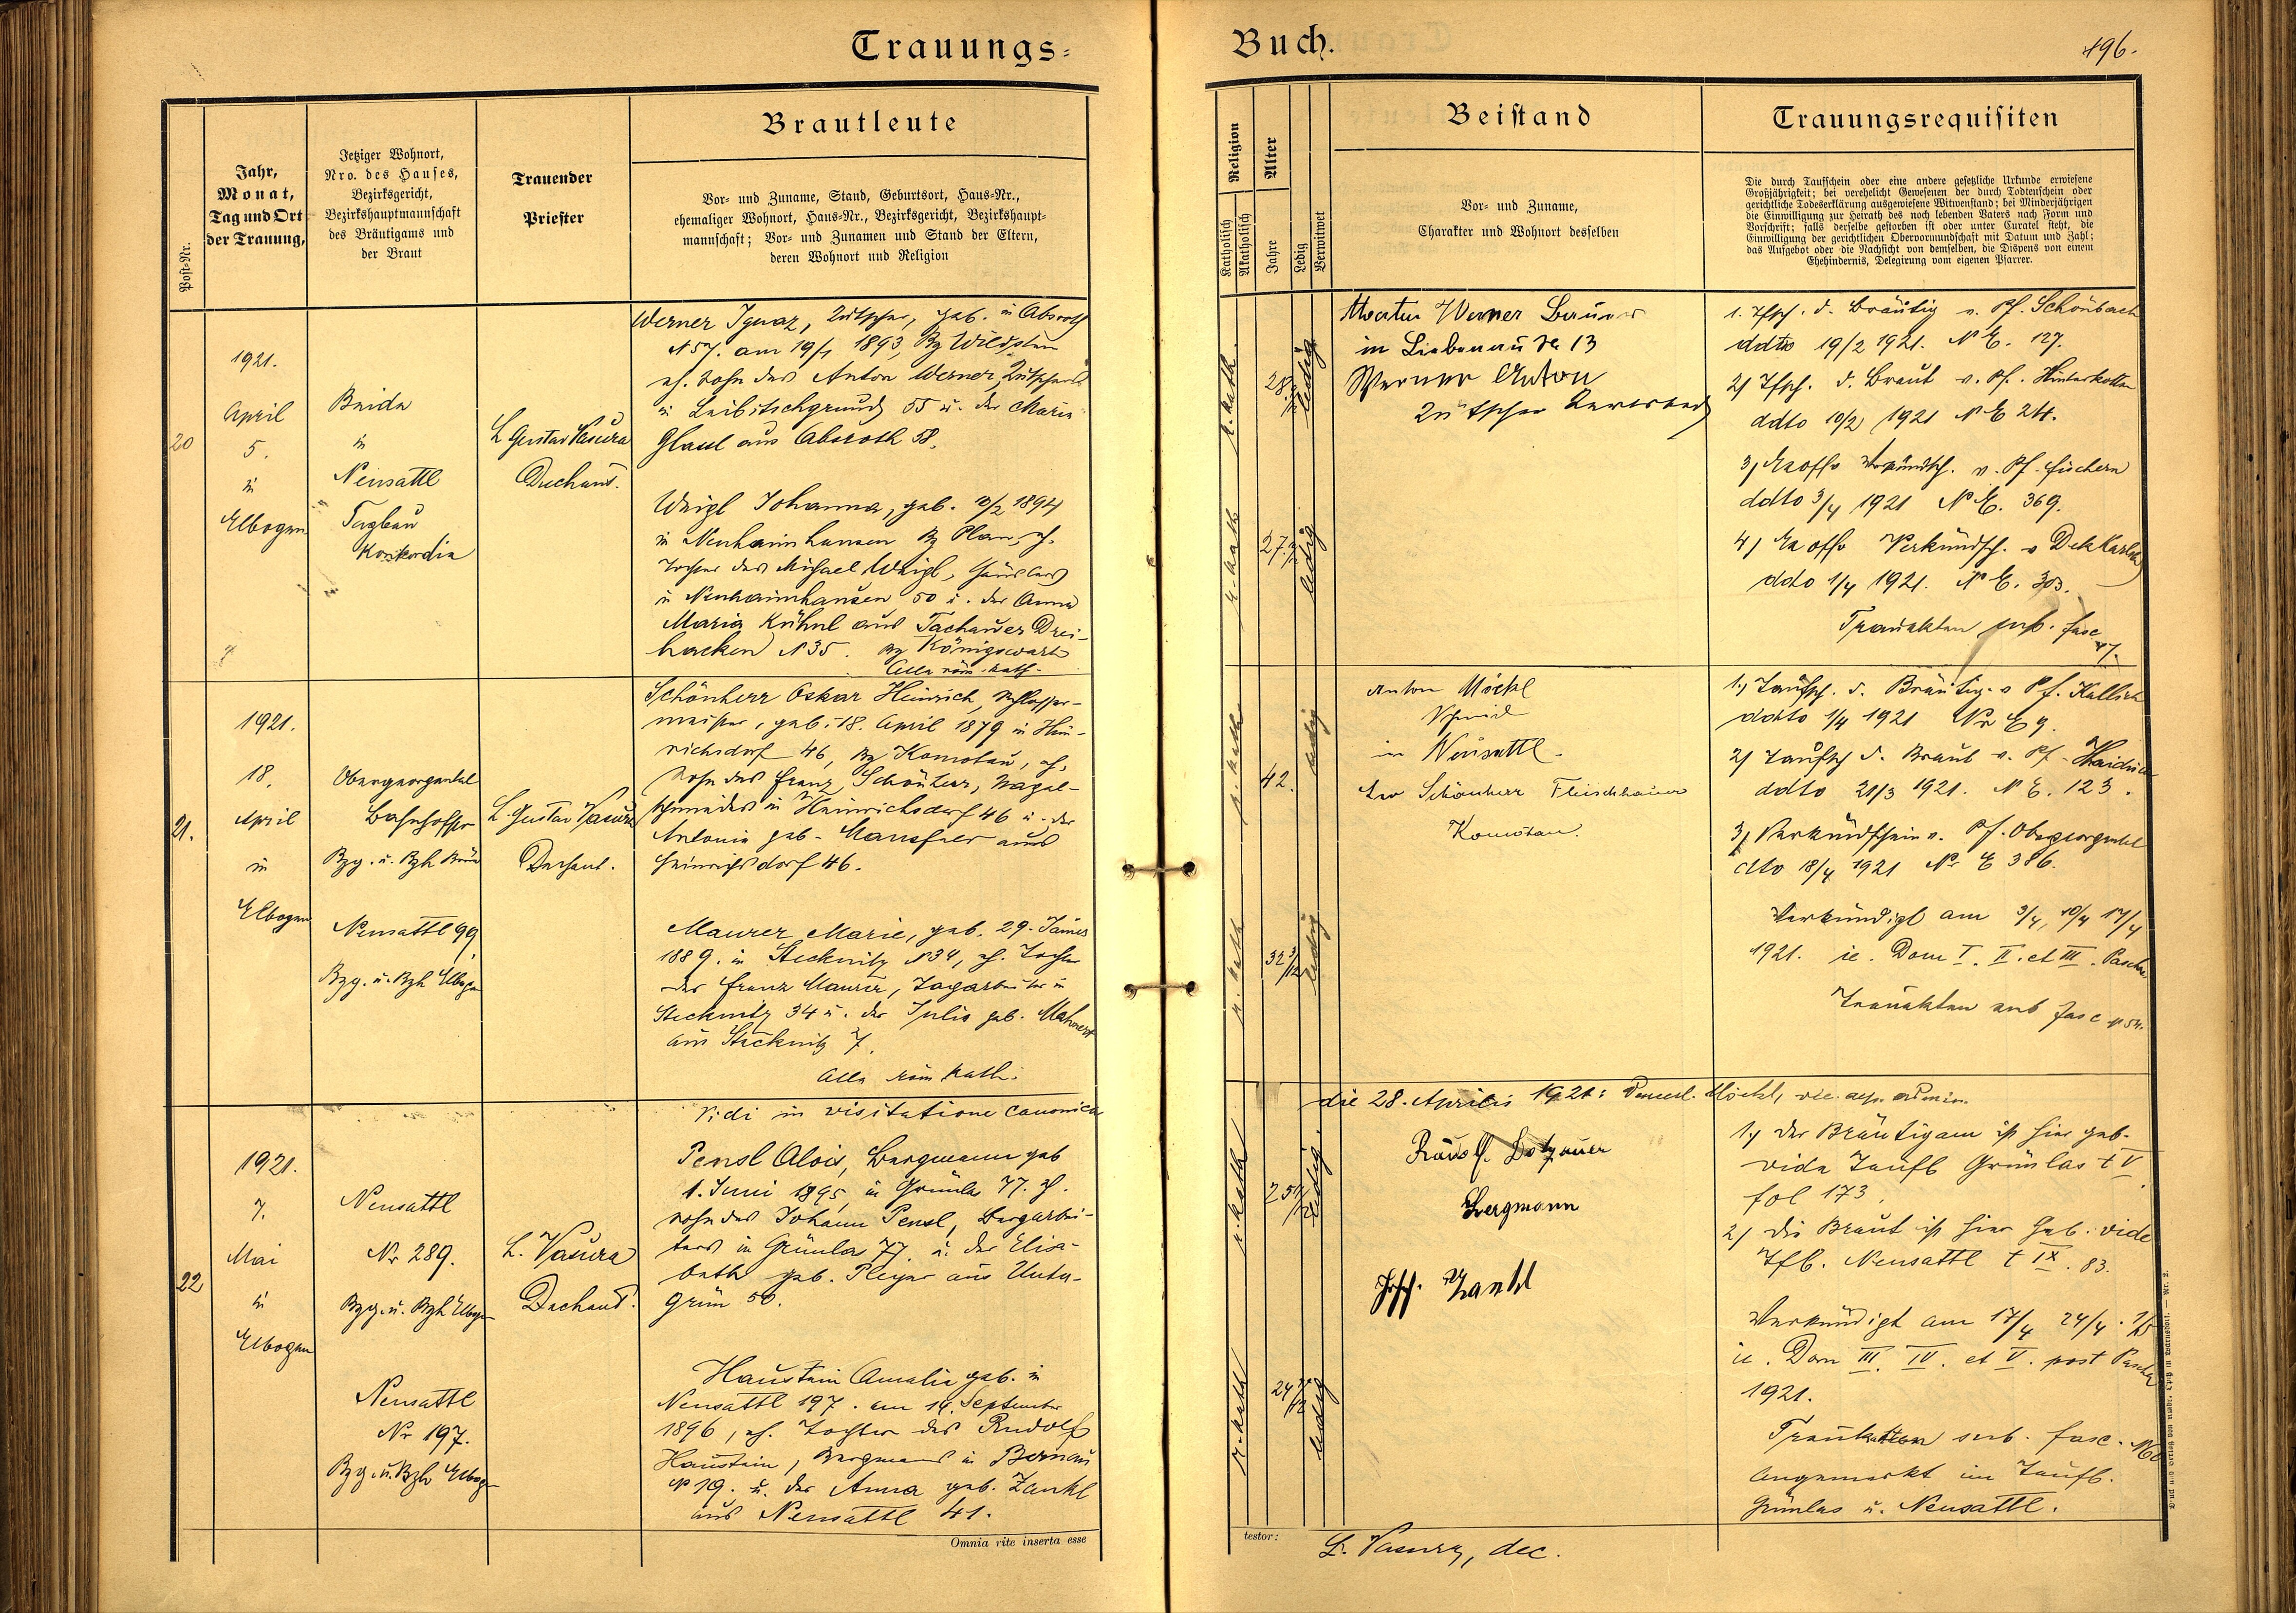 Trauungs-
Buch.
196.
Post-Nr.
Jahr,
Monat,
Tag und Ort
der Trauung,
Jetziger Wohnort,
Nro. des Hauses,
Bezirksgericht,
Bezirkshauptmannschaft
des Bräutigams und
der Braut
Trauender
Priester
Brautleute
Vor- und Zuname, Stand, Geburtsort, Haus-Nr.,
ehemaliger Wohnort, Haus-Nr., Bezirksgericht, Bezirkshaupt-
mannschaft; Vor- und Zunamen und Stand der Eltern,
deren Wohnort und Religion
Religion
Katholisch
Akatholisch
Alter
Jahre
Ledig
Verwitwet
Beistand
Vor- und Zuname,
Charakter und Wohnort desselben
Trauungsrequisiten
Die durch Taufschein oder eine andere gesetzliche Urkunde erwiesene
Großjährigkeit; bei verehelicht Gewesenen der durch Todtenschein oder
gerichtliche Todeserklärung ausgewiesene Witwenstand; bei Minderjährigen
die Einwilligung zur Heirath des noch lebenden Vaters nach Form und
Vorschrift; falls derselbe gestorben ist oder unter Curatel steht, die
Einwilligung der gerichtlichen Obervormundschaft mit Datum und Zahl;
das Aufgebot oder die Nachsicht von demselben, die Dispens von einem
Ehehindernis, Delegirung vom eigenen Pfarrer.
20
1921.
April
5.
in
Elbogen
Beide
in
Neusattl
Tagbau
Konkordia
L Gustav Vasura
Dechant.
Werner Ignaz, Kutscher, geb. in Absroth
N 57. am 19/1 1893, Bz Wildstein
eh. Sohn des Anton Werner, Kutschers
in Leibitschgrund 55 u. der Maria
Glassl aus Absroth 58.
Weigl Johanna, geb. 1894
in Neuhaimhausen Bz Plan, eh.
Tochter des Michael Weigl, Häuslers
in Neuhaimhausen 50 u. der Anna
Maria Kühnl aus Tachauer Drei-
hacken N 35. Bz Königswart
Alle röm. kath.
r. kath.
28
ledig
r. kath
27
ledig
Werner Bauer
in Liebenau No 13
Werner Anton
Kutscher
1. Tfsch. d. Bräutig v. Pf. Schönbach
ddto 19/2 1921. N E. 127.
2) Tfsch. d. Braut v. Pf. Hinterkotten
ddto 10/2 1921 N E 24.
3) Verkündsch. v. Pf. Fischern
ddto 3/4 1921 N E. 369.
4) Verkündsch. v Dek Karlsb
ddo 1/4 1921. N E. 303.
Trauakten sub. fasc 47.
21.
1921.
18.
April
in
Elbogen
Obergeorgental
Bahnhofstr
Bzg. u. Bzh. Brüx
Neusattl 99,
Bzg. u. Bzh Elbogen
L. Gustav Vasura
Dechant.
Schönherr Oskar Heinrich, Schlosser-
meister, geb. 18. April 1879 in Hein-
richsdorf 46, Bz Komotau, eh.
Sohn des Franz Schönherr, Nagel-
schmiedes in Heinrichsdorf 46 u. der
Antonia geb. Mansfeld aus
Heinrichsdorf 46.
Maurer Marie, geb. 29. Jänner
1889. in Stecknitz N 34, eh. Tochter
des Franz Maurer, Tagarbeiter in
Stecknitz 34 u. der Julie geb.
aus Stecknitz 7.
Alle röm kath.
r. kath
42.
ledig
r. kath
32 3/12
ledig
Anton Möckl
Schmied
in Neusattl.
Leo Schönherr Fleischhauer
Komotau.
1.) Taufsch. d. Bräutig. v Pf. Kallich
ddto 1/4 1921 Nr E 9.
2) Taufsch d. Braut v. Pf.
ddto 21/3 1921. N E. 123.
3) Verkündschein v. Pf. Obergeorgental
dto 18/4 1921 Nr E 386.
Verkündigt am 3/4, 10/4 17/4
1921. ie. Dom I. II. et III. Pascha
Trauakten sub fasc N 54.
Vidi in visitatione canonica
die 28. Aprilis 1921:
22
1921.
7.
Mai
in
Elbogen
Neusattl
Nr 289.
Bzg. u. Bzh Elbogen
Neusattl
Nr 197.
Bzg. u. Bzh Elbogen
L. Vasura
Dechant.
Pensl Alois, Bergmann geb
1. Juni 1895, in Grünlas 77. eh.
Sohn des Johann Pensl, Bergarbei-
ters in Grünlas 77. u. der Elisa-
beth geb. Pleyer aus Unter-
grün 50.
Haustein Amalie geb. in
Neusattl 197. am 14. September
1896, eh. Tochter des Rudolf
Haustein, Bergmann in Bernau
N 19. u. der Anna geb. Zankl
aus Neusattl 41.
r. kath
25
ledig
r. kath
24 7/12
ledig
Rudolf Dotzauer
Bergmann
Josef. Zankl
1.) der Bräutigam ist hier geb.
vide Taufb Grünlas t V
fol 173.
2) die Braut ist hier geb. vide
Tfb. Neusattl t IX. 83.
Verkündigt am 17/4 24/4. 1/5
ie. Dom III. IV. et V. post Pascha
1921.
Trauakten sub. fasc. N 60
Angemerkt im Taufb.
Grünlas u. Neusattl.
Omnia rite inserta esse
testor:
L. Vasura, dec.